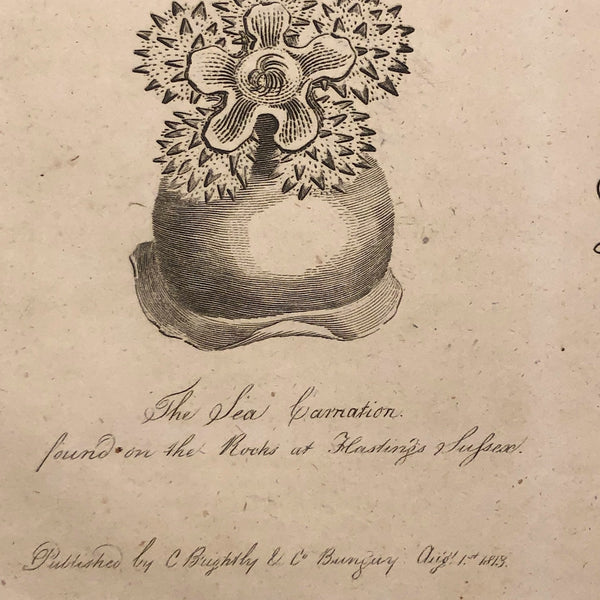 The Sea Carnation.
found on the Rocks at Hastings Sussex.
Published by C Brightly & Co Bungay Augt. 1st 1813.